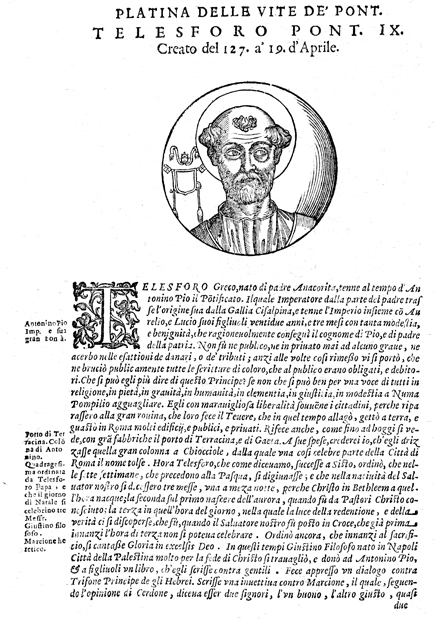 PLATINA DELLE VITE DE' PONT.
TELESFORO PONT. IX.
Creato del 127. a' 19. d'Aprile.
TELESFORO Greco, nato di padre Anacorita, tenne al tempo d'An
tonino Pio il Põtificato. Il quale Imperatore dalla parte del padre traſ
ſe l'origine ſua dalla Gallia Ciſalpina, e tenne l'Imperio inſieme cõ Au
relio, e Lucio ſuoi figliuoli ventidue anni, e tre meſi con tanta modeſtia,
e benignità, che ragioneuolmente conſeguì il cognome di Pio, e di padre
della patria. Non fù ne publico, ne in priuato mai ad alcuno graue, ne
acerbo nelle eſattioni de danari, o de' tributi; anzi alle volte coſi rimeſſo vi ſi portò, che
ne bruciò publicamente tutte le ſcritture di coloro, che al publico erano obligati, e debito-
ri. Che ſi può egli più dire di queſto Principe? ſe non che ſi può ben per vna voce di tutti in
religione, in pietà, in grauità, in humanità, in clementia, in giuſtitia, in modeſtia a Numa
Pompilio agguagliare. Egli con marauiglioſa liberalità ſouuẽne i cittadini, perche ripa
raſſero alla gran rouina, che loro fece il Teuere, che in quel tempo allagò, gettò a terra, e
guaſtò in Roma molti edificij, e publici, e priuati. Rifece anche, come fino ad hoggi ſi ve-
de, con grã fabbriche il porto di Terracina, e di Gaeta. A ſue ſpeſe, crederei io, ch'egli driz
zaſſe quella gran colonna a Chiocciole, dalla quale vna coſi celebre parte della Città di
Roma il nome tolſe. Hora Telesforo, che come diceuamo, ſucceſſe a Siſto, ordinò, che nel-
le ſette ſettimane, che precedono alla Paſqua, ſi digiunaſſe; e che nella natiuità del Sal-
uator noſtro ſi diceſſero tre meſſe, vna a meza notte, perche Chriſto in Bethleem a quel-
l'hora nacque; la ſeconda ſul primo naſcere dell'aurora, quando fù da Paſtori Chriſto co-
noſciuto: la terza in quell'hora del giorno, nella quale la luce della redentione, e della
verità ci ſi diſcoperſe, che fù, quando il Saluatore noſtro fù poſto in Croce, che già prima
innanzi l'hora di terza non ſi poteua celebrare. Ordinò ancora, che innanzi al ſacriſi-
cio, ſi cantaſſe Gloria in excelſis Deo. In queſti tempi Giuſtino Filoſofo nato in Napoli
Città della Paleſtina molto per la fede di Chriſto ſi trauagliò, e donò ad Antonino Pio,
& a figliuoli vn libro, ch'egli ſcriſſe contra gentili. Fece appreſſo vn dialogo contra
Trifone Principe de gli Hebrei. Scriſſe vna inuettiua contro Marcione, il quale, ſeguen-
do l'opinione di Cerdone, diceua eſſer due ſignori, l'vn buono, l'altro giuſto, quaſi
due
Antonino Pio
Imp. e ſua
gran bontà.
Porto di Ter
racina. Colõ
na di Anto
nino.
Quadrageſi-
ma ordinata
da Telesfo-
ro Papa, e
che il giorno
di Natale ſi
celebrino tre
Meſſe.
Giuſtino filo
ſofo.
Marcione he
retico.